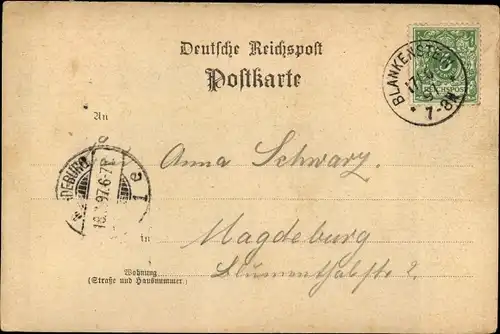 Deutsche Reichspost
Postkarte
BLANKENSTEIN
17
7-8N
REICHSPOST
An
Anna Schwarz.
97.6-7
1 e
in
Magdeburg
Blumenthalstr 2.
Wohnung
(Straße und Hausnummer)